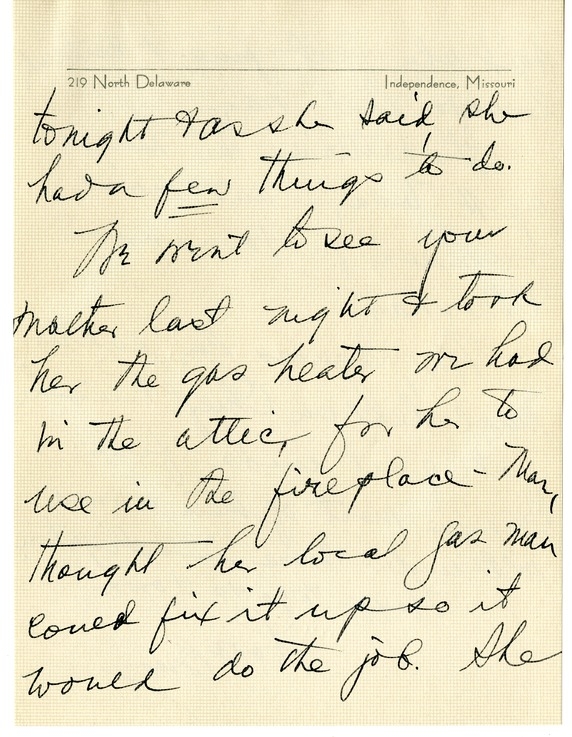 219 North Delaware Independence, Missouri
tonight & as she said, she
had a few things to do.
We went to see your
mother last night & took
her the gas heater we had
in the attic, for her to
use in the fireplace - Mary
thought her local gas man
could fix it up so it
would do the job. She